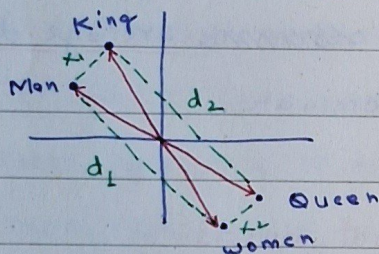 King
x1
Man
d2
d1
Queen
x2
women